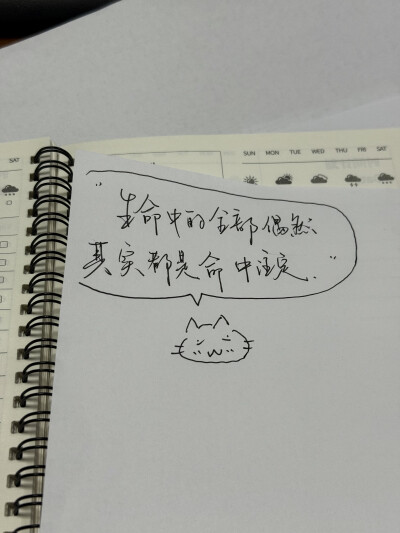 SAT
SUN MON TUE WED THU FRI SAT
“生命中的全部偶然
其实都是命中注定.”